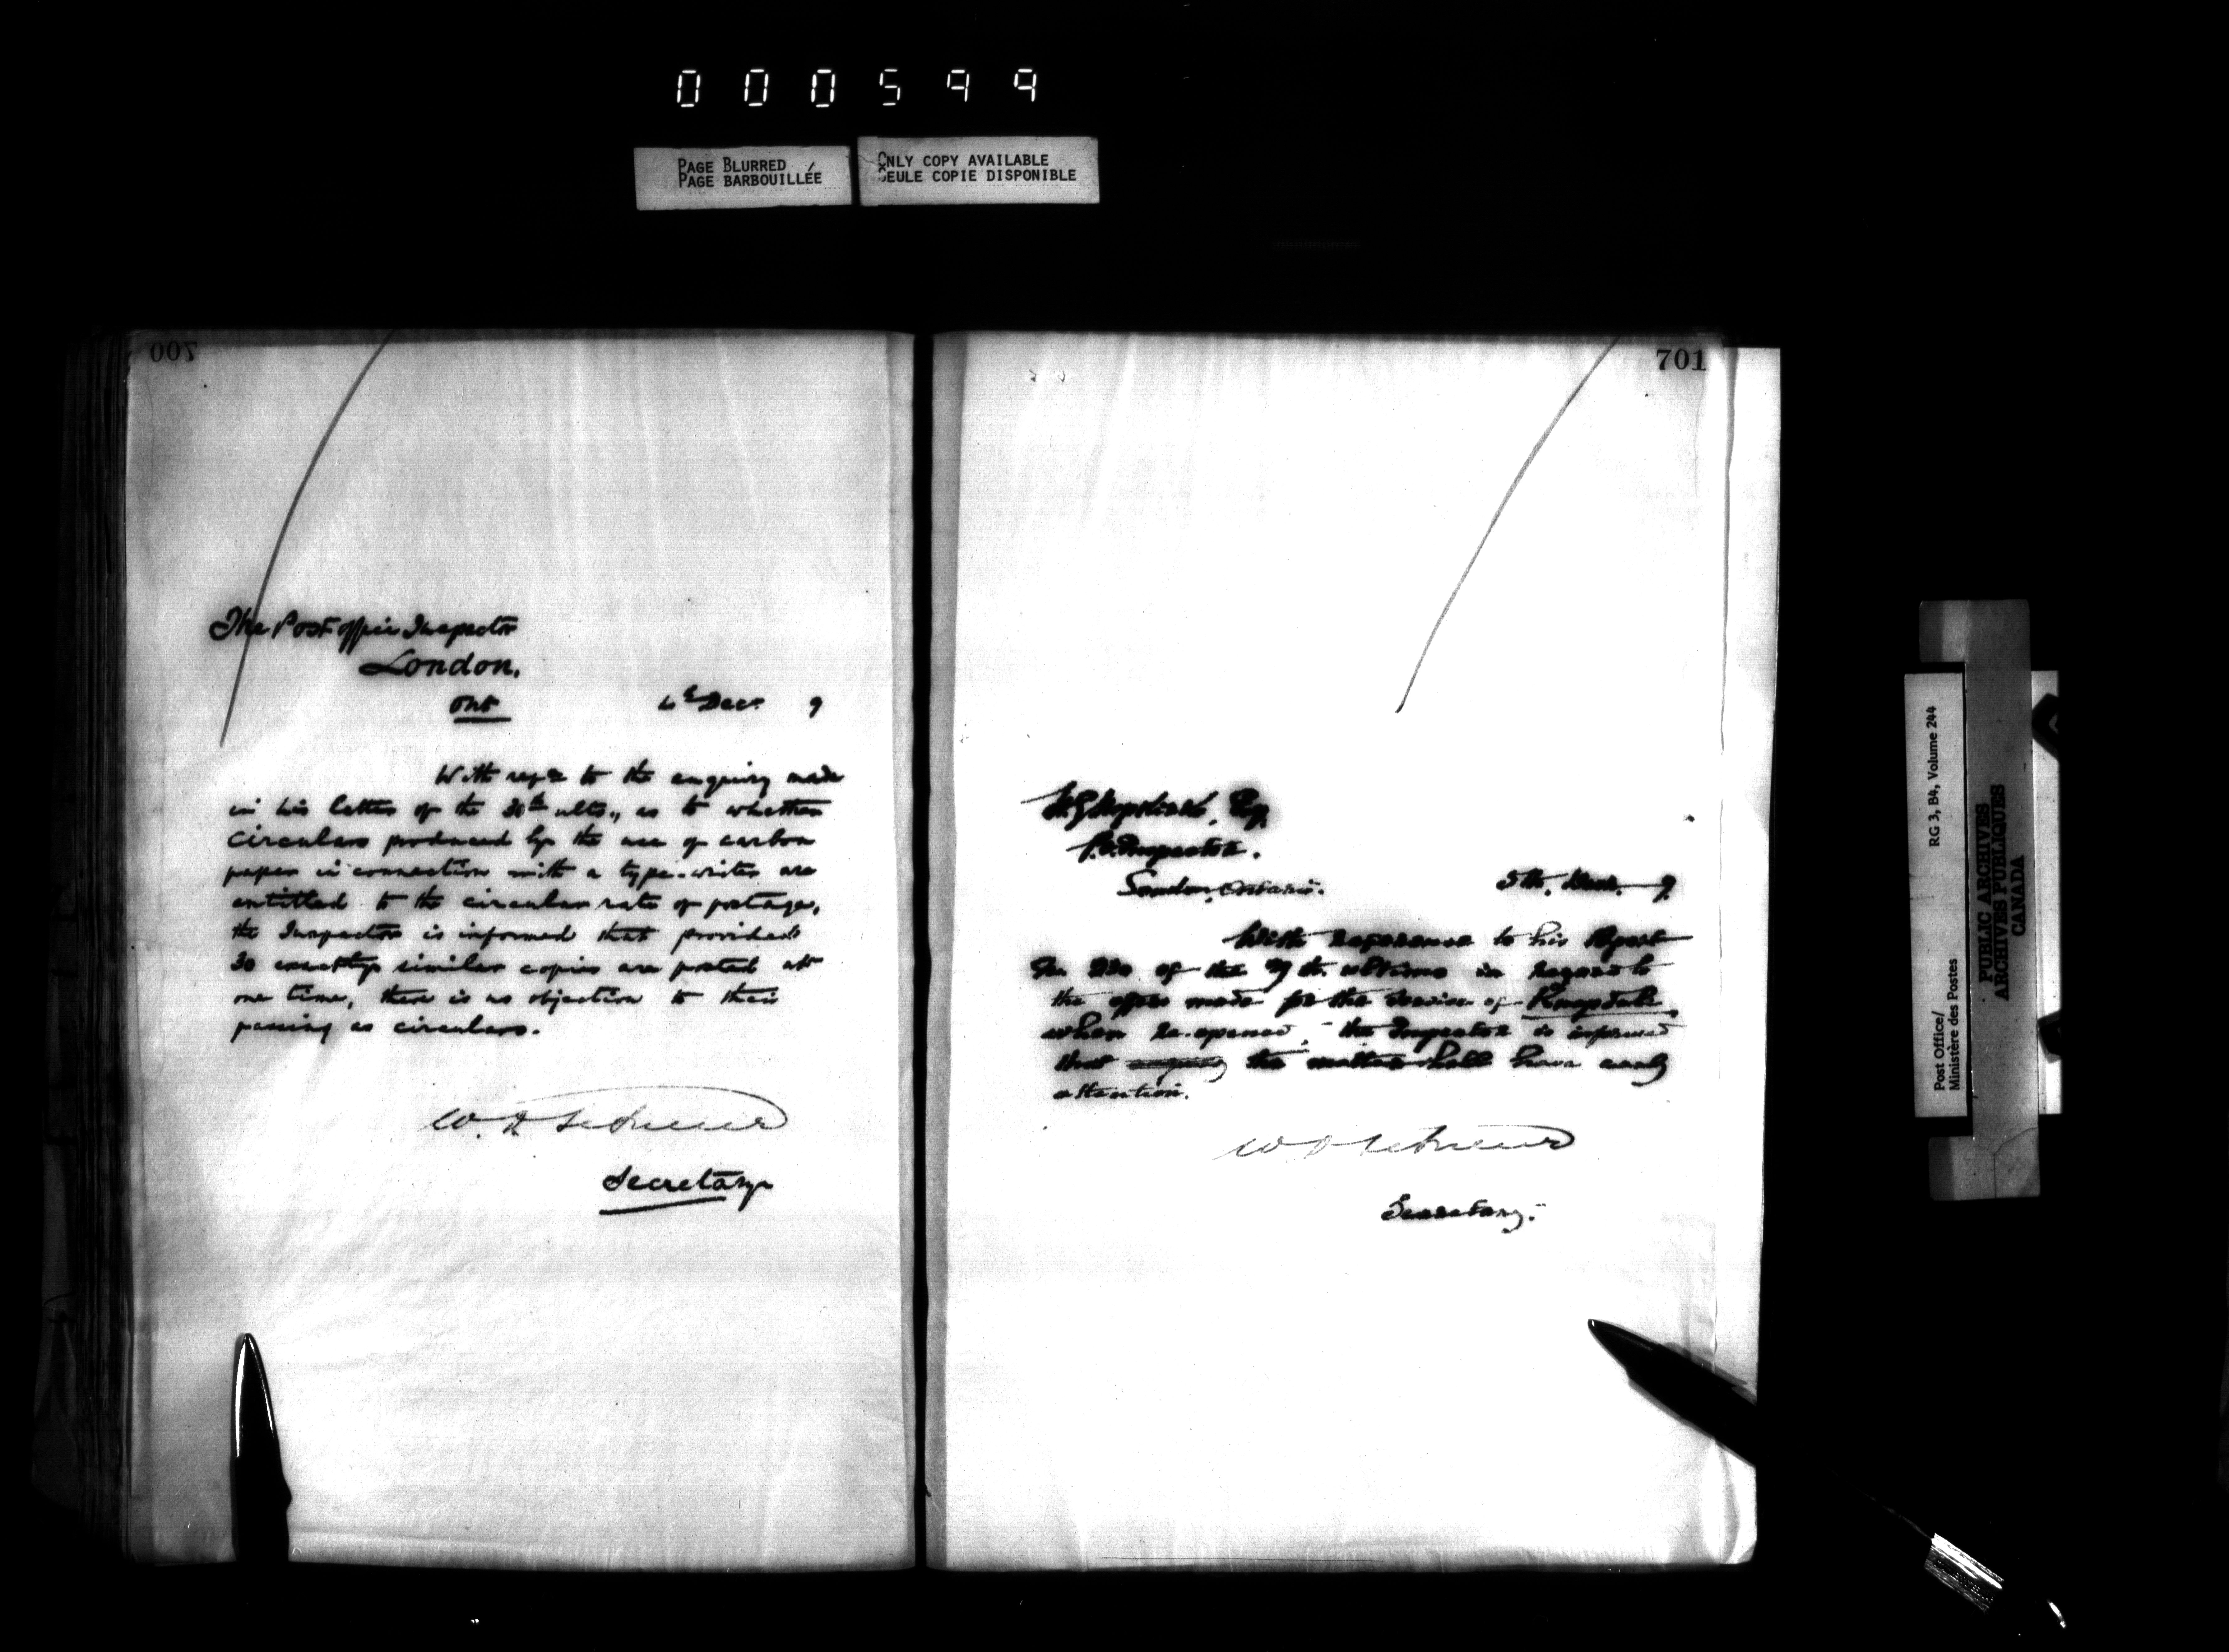 000599
PAGE BLURRED
PAGE BARBOUILLÉE
ONLY COPY AVAILABLE
SEULE COPIE DISPONIBLE
700
The Post Office Inspector
London.
Ont
4th Decr 9
With refce to the enquiry made
in his letter of the 30th ulto, as to whether
circulars produced by the use of carbon
paper in connection with a type-writer are
entitled to the circular rate of postage,
the Inspector is informed that provided
30 exactly similar copies are posted at
one time, there is no objection to their
passing as circulars.
Secretary
701
Esq.
P.O. Inspector.
London, Ontario.
5th. 9.
With reference to his Report
of the ultimo in regard to
the offer made for the service of Knapdale
when re-opened, the Inspector is informed
that the matter shall have early
attention.
Secretary.
Post Office/
Ministère des Postes
RG 3, B4, Volume 244
PUBLIC ARCHIVES
ARCHIVES PUBLIQUES
CANADA